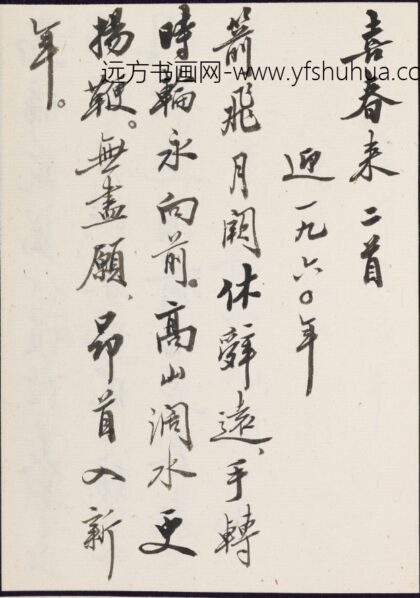 喜春来二首
迎一九六〇年
箭飛月闕休辤遠、手轉
時輪永向前。高山濶水更
揚鞭。無盡願、昂首入新
年。
远方书画网-www.yfshuhua.com